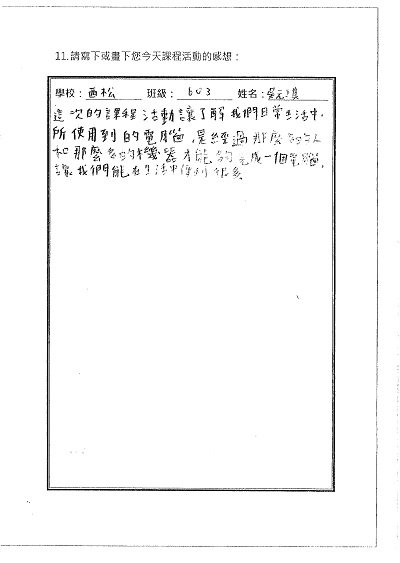 11.請寫下或畫下您今天課程活動的感想：
學校：西松 班級：603 姓名：
這次的課程活動讓了解我們日常生活中，
所使用到的電腦，是經過那麼多的人
和那麼多的機器才能夠完成一個電腦，
讓我們能在生活中便利很多